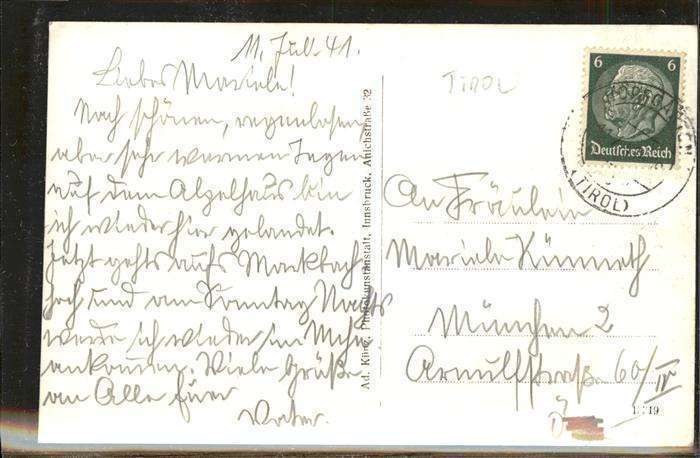 11. Juli 41.
Liebes Mariele!
Nach schönen, regenlosen,
aber sehr warmen Tagen
auf dem Alpelhaus bin
ich wieder hier gelandet.
Jetzt gehts aufs
hoch und am Sonntag Nachts
werde ich wieder in Mchn
ankommen. Viele Grüße
an Alle Euer
Vater.
Ad. Künz, Photokunstanstalt, Innsbruck, Anichstraße 32
TIROL
6 6
Deutsches Reich
(TIROL)
An Fräulein
Mariele Künneth
München 2
Arnulfstraße 60/IV